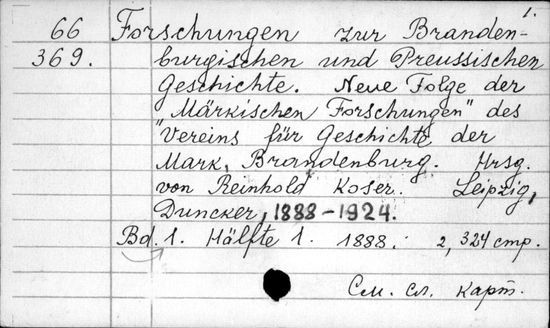 1.
66 Forschungen zur Branden-
369. burgischen und Preussischen
Geschichte. Neue Folge der
"Märkischen Forschungen" des
"Vereins für Geschichte der
Mark Brandenburg. Hrsg.
von Reinhold Koser. Leipzig,
Duncker, 1888-1924.
Bd. 1. Hälfte 1. 1888. 2, 324 стр.
См. сл. карт.